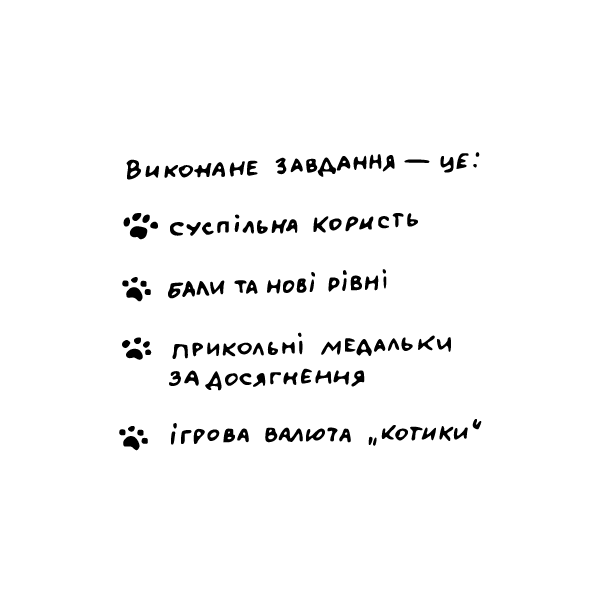 Виконане завдання — це:
суспільна користь
бали та нові рівні
прикольні медальки
за досягнення
ігрова валюта „котики“